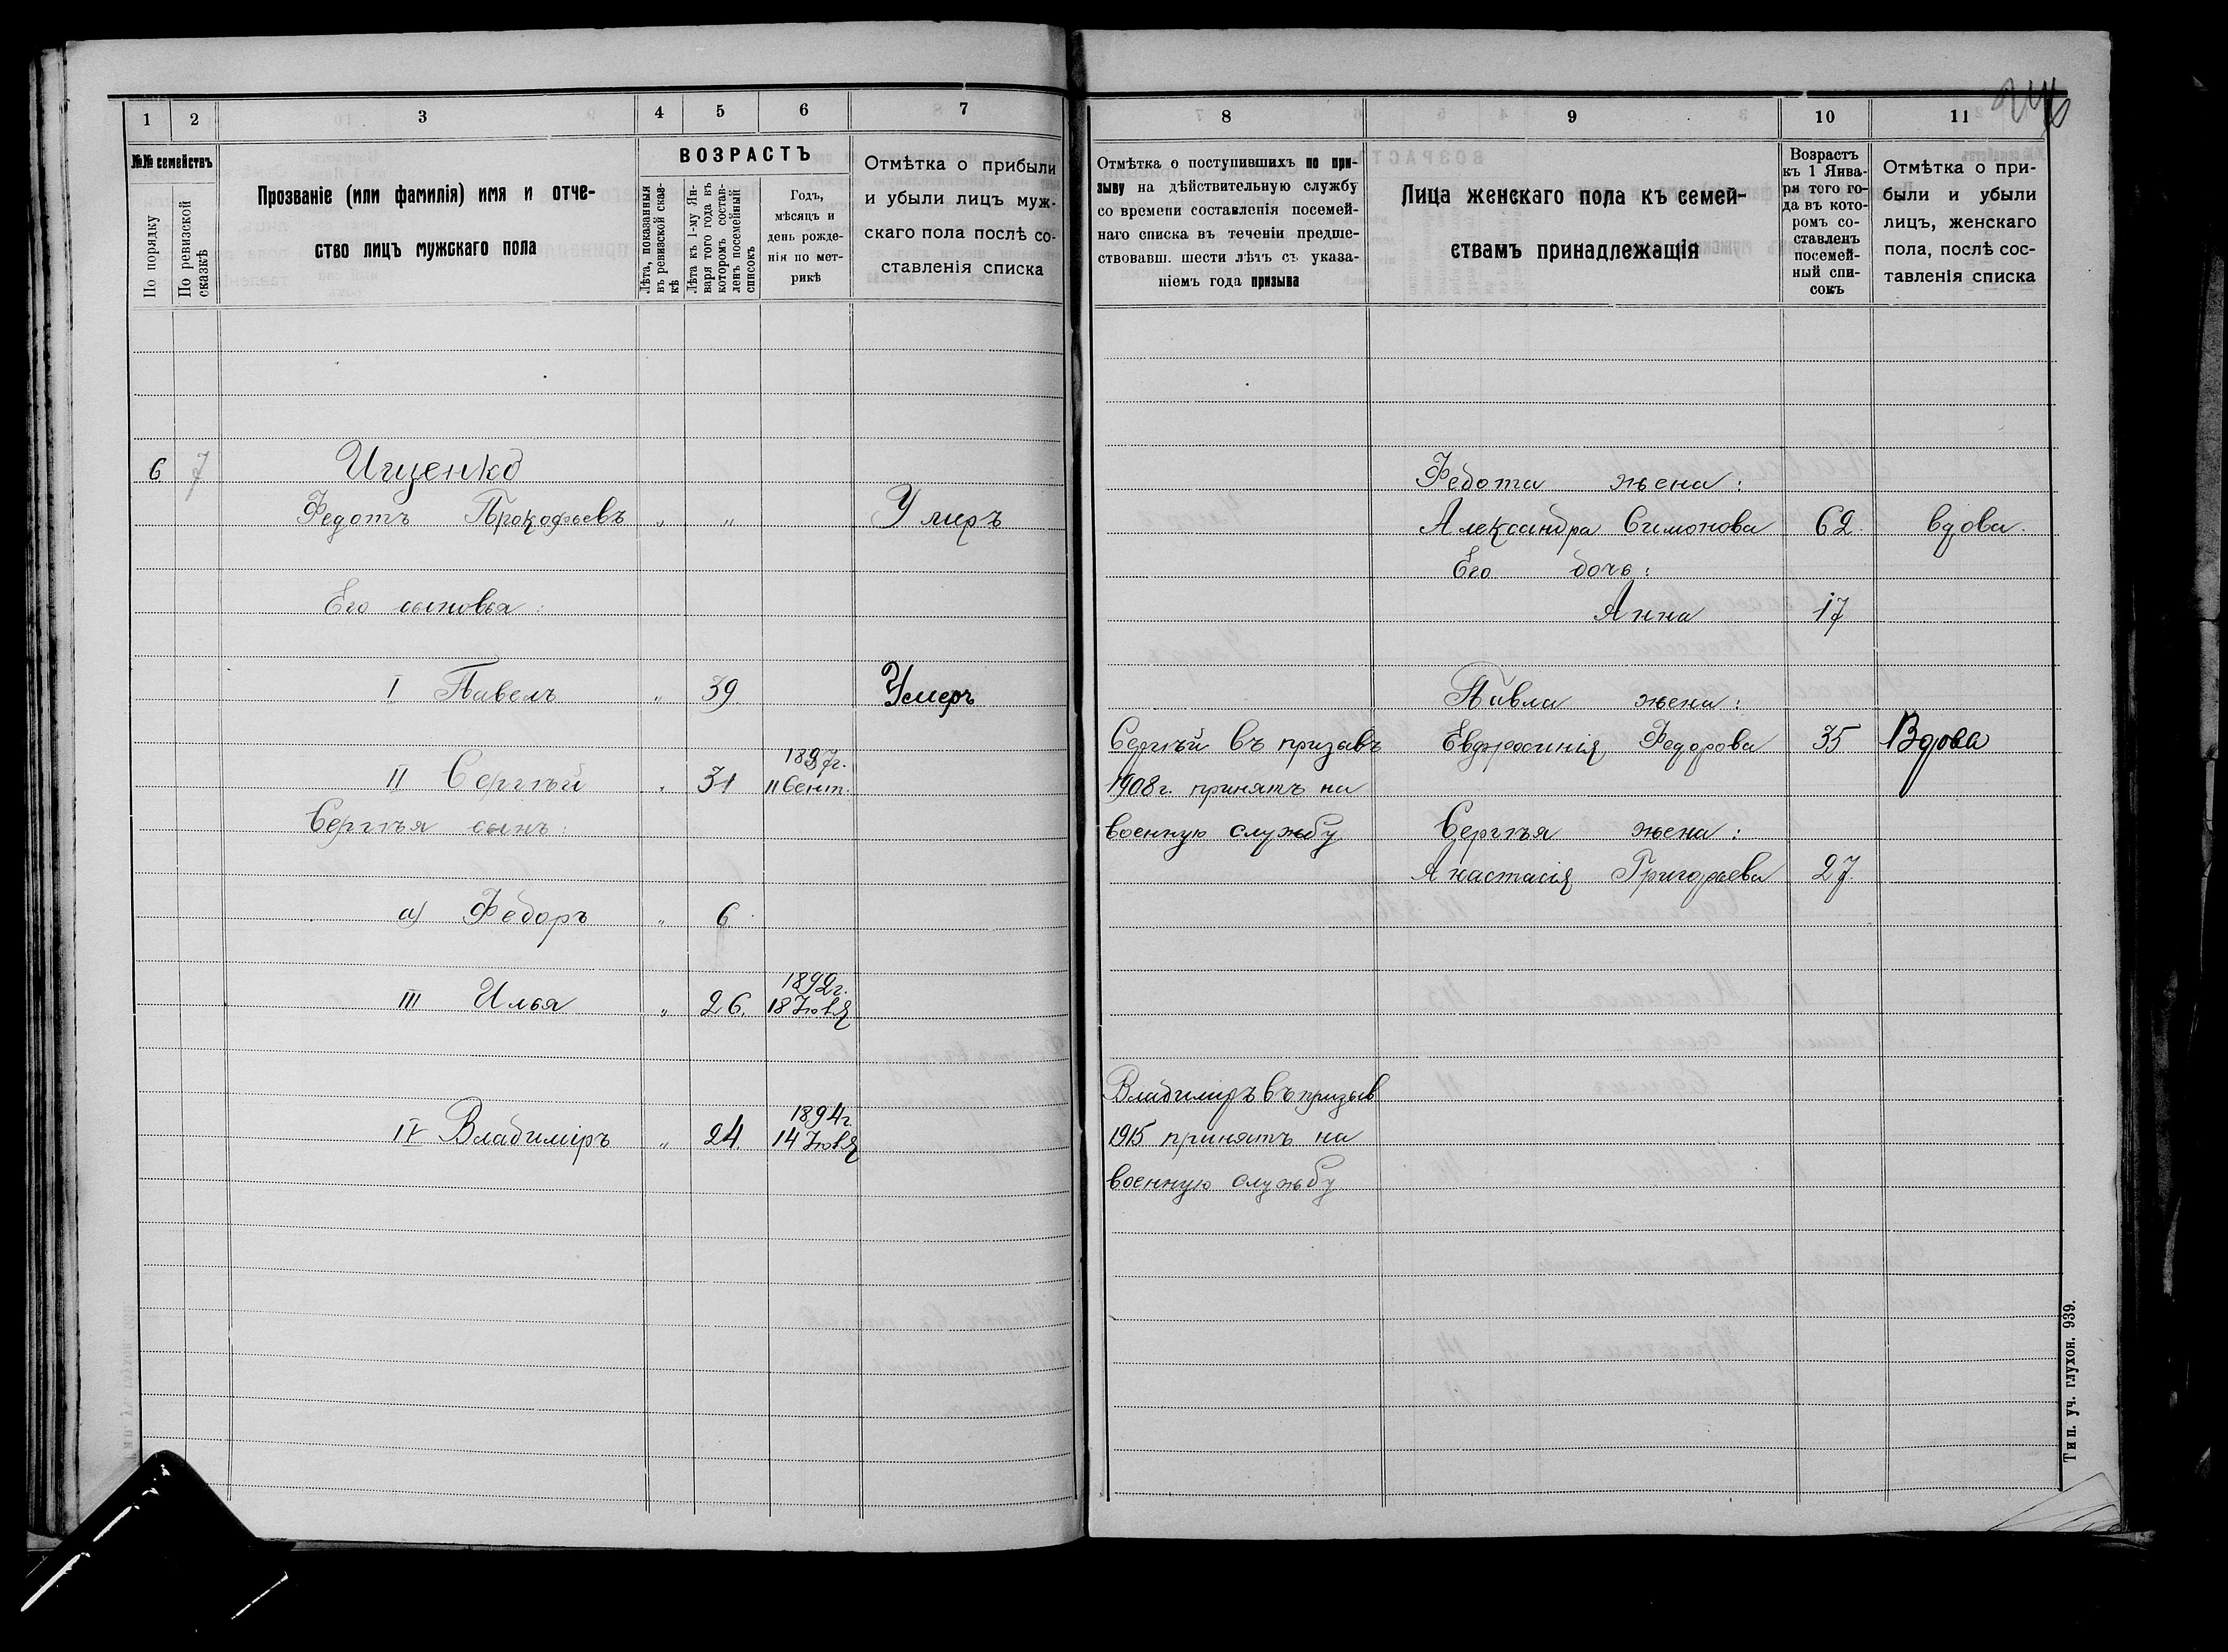 1 2 3 4 5 6 7
№№ семействъ
По порядку
По ревизской сказкѣ
Прозваніе (или фамилія) имя и отче-
ство лицъ мужскаго пола
ВОЗРАСТЪ
Лѣта, показанныя
въ ревизской сказ-
кѣ
Лѣта къ 1-му Ян-
варя того года въ
которомъ состав-
ленъ посемейный
списокъ
Годъ,
мѣсяцъ и
день рожде-
нія по мет-
рикѣ
Отмѣтка о прибыли
и убыли лицъ муж-
скаго пола послѣ со-
ставленія списка
6 7 Ищенко
Федотъ Прокофьевъ „ „ Умиръ
Его сыновья:
I Павелъ „ 39. Умеръ
1887г.
II Сергѣй „ 31 11 Сент.
Сергѣя сынъ:
а) Федоръ „ 6.
1892г.
III Илья „ 26. 18 Іюля
1894г
IV Владиміръ „ 24. 14 Іюля
8 9 10 11
Отмѣтка о поступившихъ по при-
зыву на дѣйствительную службу
со времени составленія посемей-
наго списка въ теченіи предше-
ствовавш. шести лѣтъ съ указа-
ніемъ года призыва
Лица женскаго пола къ семей-
ствамъ принадлежащія
Возрастъ
къ 1 Янва-
ря того го-
да въ кото-
ромъ со-
ставленъ
посемей-
ный спи-
сокъ
Отмѣтка о при-
были и убыли
лицъ, женскаго
пола, послѣ сос-
тавленія списка
Федота жена:
Александра Симонова 62. вдова.
Его дочь:
Анна 17
Павла жена:
Сергѣй въ призывъ Евфросинія Федорова 35 Вдова
1908г. принятъ на
военную службу Сергѣя жена:
Анастасія Григорьева 27.
Владиміръ въ призыв
1915 принятъ на
военную службу
Тип. уч. глухон. 939.